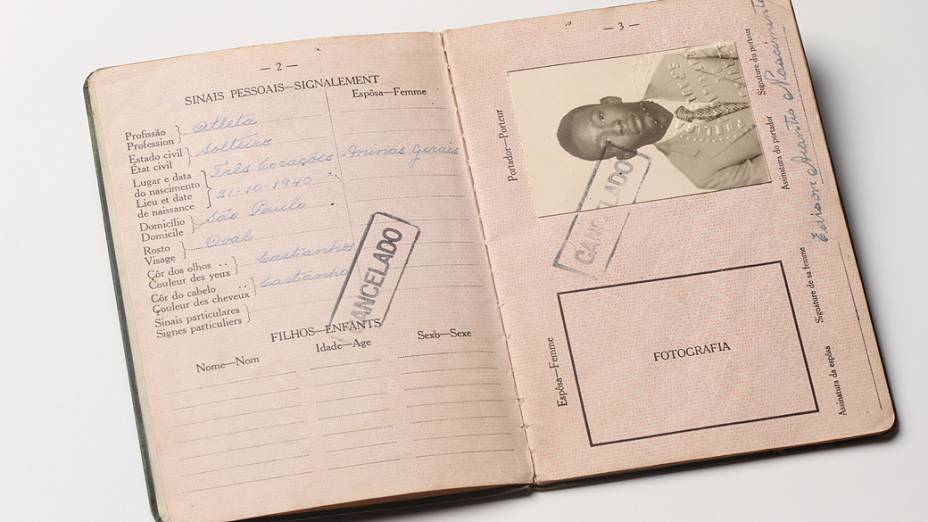 — 2 —
SINAIS PESSOAIS—SIGNALEMENT
Espôsa—Femme
Profissão
Profession
Atleta
Estado civil
État civil
Solteiro
Lugar e data
do nascimento
Lieu et date
de naissance
Três Corações - Minas Gerais
21-10-1940
Domicílio
Domicile
São Paulo
Rosto
Visage
Oval
Côr dos olhos
Couleur des yeux
Castanhos
Côr do cabelo
Couleur des cheveux
Castanho
Sinais particulares
Signes particuliers
CANCELADO
FILHOS—ENFANTS
Nome—Nom
Idade—Age
Sexo—Sexe
— 3 —
Portador—Porteur
CANCELADO
Assinatura do portador
Signature du porteur
Edison Arantes Nascimento
Espôsa—Femme
FOTOGRAFIA
Assinatura da espôsa
Signature de sa femme